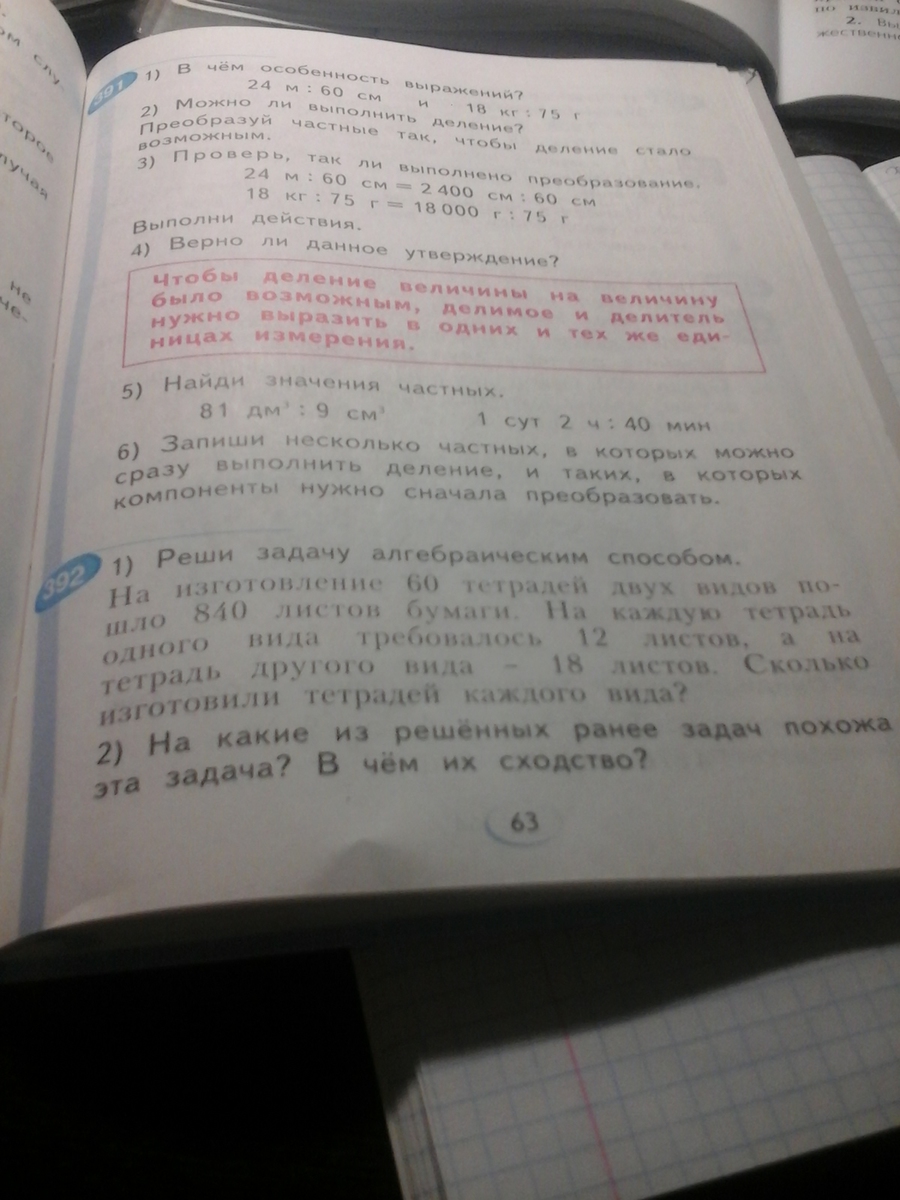 ом слу-
торое
лучая
не
че-
по извил
2. Вы
жественн
391 1) В чём особенность выражений?
24 м : 60 см и 18 кг : 75 г
2) Можно ли выполнить деление?
Преобразуй частные так, чтобы деление стало
возможным.
3) Проверь, так ли выполнено преобразование.
24 м : 60 см = 2 400 см : 60 см
18 кг : 75 г = 18 000 г : 75 г
Выполни действия.
4) Верно ли данное утверждение?
Чтобы деление величины на величину
было возможным, делимое и делитель
нужно выразить в одних и тех же еди-
ницах измерения.
5) Найди значения частных.
81 дм³ : 9 см³ 1 сут 2 ч : 40 мин
6) Запиши несколько частных, в которых можно
сразу выполнить деление, и таких, в которых
компоненты нужно сначала преобразовать.
392 1) Реши задачу алгебраическим способом.
На изготовление 60 тетрадей двух видов по-
шло 840 листов бумаги. На каждую тетрадь
одного вида требовалось 12 листов, а на
тетрадь другого вида – 18 листов. Сколько
изготовили тетрадей каждого вида?
2) На какие из решённых ранее задач похожа
эта задача? В чём их сходство?
63